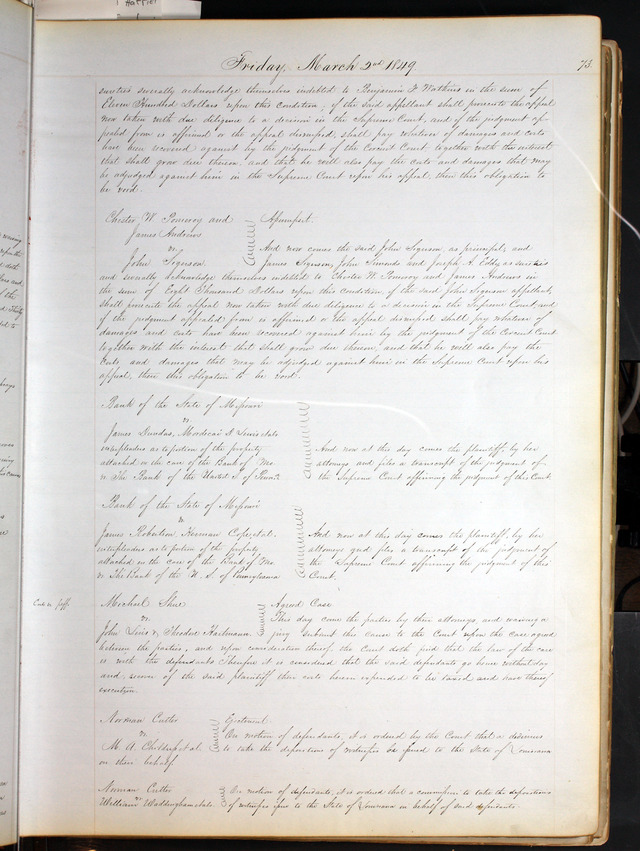 Friday, March 2nd 1849 73.
sureties severally acknowledge themselves indebted to Benjamin F Watkins in the sum of
Eleven Hundred Dollars upon this condition, if the said appellant shall prosecute the appeal
now taken with due diligence to a decision in the Supreme Court, and if the judgment ap-
pealed from is affirmed or the appeal dismissed, shall pay whatever of damages and costs
have been recovered against by the judgment of the Circuit Court together with the interest
that shall grow due thereon and that he will also pay the costs and damages that may
be adjudged against him in the Supreme Court upon his appeal, then this obligation to
be void.
Chester W. Pomeroy and
James Andrews
vs
John Sigerson
Assumpsit.
And now comes the said John Sigerson, as principal, and
James Sigerson, John Simonds and Joseph A. Eddy, as sureties
and severally acknowledge themselves indebted to Chester W. Pomeroy and James Andrews in
the sum of Eight Thousand Dollars upon this condition, if the said John Sigerson appellant,
shall prosecute the appeal now taken with due diligence to a decision in the Supreme Court, and
if the judgment appealed from is affirmed or the appeal dismissed shall pay whatever of
damages and costs have been recovered against him by the judgment of the Circuit Court
together with the interest that shall grow due thereon, and that he will also pay the
costs and damages that may be adjudged against him in the Supreme Court upon his
appeal, then this obligation to be void.
Bank of the State of Missouri
vs
James Dundas, Mordecai D Lewis et al
interpleaders as to portion of the property
attached in the case of the Bank of Mo
v The Bank of the United S of Penna.
And now at this day comes the plaintiff, by her
attorneys and files a transcript of the judgment of
the Supreme Court affirming the judgment of this Court.
Bank of the State of Missouri
vs
James Robertson, Herman Cope, et al.
interpleaders as to portion of the property
attached in the case of the Bank of Mo
v The Bank of the U. S. of Pennsylvania
And now at this day comes the plaintiff, by her
attorneys and files a transcript of the judgment of
the Supreme Court affirming the judgment of this
Court.
Michael
vs
John & Theodore Hartmann
Agreed Case
This day come the parties by their attorneys, and waiving a
jury submit this cause to the Court upon the case agreed
between the parties, and upon consideration thereof the Court doth find that the law of the case
is with the defendants Therefore it is considered that the said defendants go hence without day
and recover of the said plaintiff their costs herein expended to be taxed and have thereof
execution.
Norman Cutter
vs
M. A. et al.
Ejectment.
On motion of defendants, it is ordered by the Court that a dedimus
to take the deposition of witnesses be issued to the State of Louisiana
on their behalf
Norman Cutter
vs
William Waddingham et al.
On motion of defendants, it is ordered that a commission to take the depositions
of witnesses issue to the State of Louisiana in behalf of said defendants.